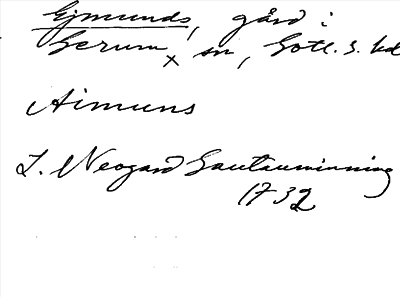 Ejmunds, gård i
Gerum, sn, Gotl. s. hd
Aimuns
J. Neogard Gautauminning
1732